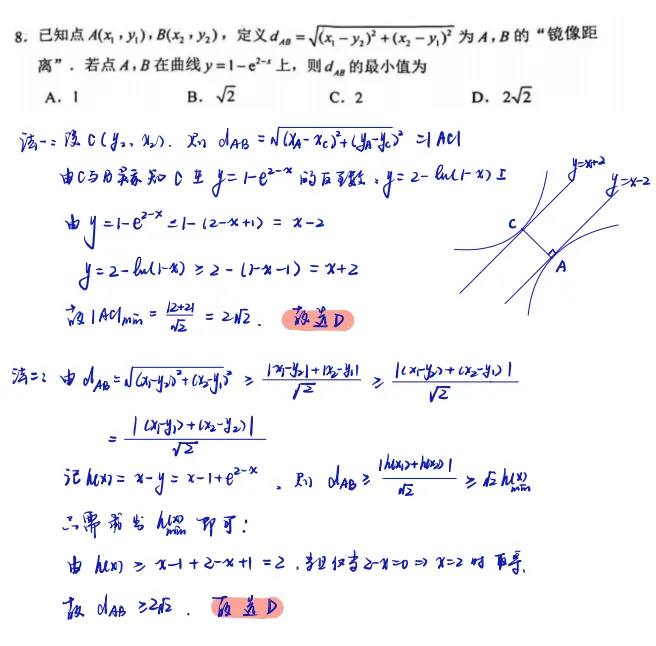 8. 已知点 A(x₁, y₁), B(x₂, y₂), 定义 d_AB = √((x₁ − y₂)² + (x₂ − y₁)²) 为 A, B 的“镜像距
离”. 若点 A, B 在曲线 y = 1 − e^(2−x) 上, 则 d_AB 的最小值为
A. 1 B. √2 C. 2 D. 2√2
法一: 设 C(y₂, x₂). 则 d_AB = √((x_A − x_C)² + (y_A − y_C)²) = |AC|
由 C 与 B 关系知 C 在 y = 1 − e^(2−x) 的反函数: y = 2 − ln(1−x) 上
由 y = 1 − e^(2−x) ≤ 1 − (2−x+1) = x−2
y = 2 − ln(1−x) ≥ 2 − (1−x−1) = x+2
故 |AC|min = |2+2|/√2 = 2√2. 故选 D
y=x+2
y=x−2
C
A
法二: 由 d_AB = √((x₁−y₂)² + (x₂−y₁)²) ≥ (|x₁−y₂| + |x₂−y₁|)/√2 ≥ |(x₁−y₂) + (x₂−y₁)|/√2
= |(x₁−y₁) + (x₂−y₂)|/√2
记 h(x) = x−y = x−1+e^(2−x). 则 d_AB ≥ |h(x₁)+h(x₂)|/√2 ≥ √2 h(x)min
只需求出 h(x)min 即可:
由 h(x) ≥ x−1+2−x+1 = 2, 当且仅当 2−x=0 ⇒ x=2 时取等.
故 d_AB ≥ 2√2. 故选 D